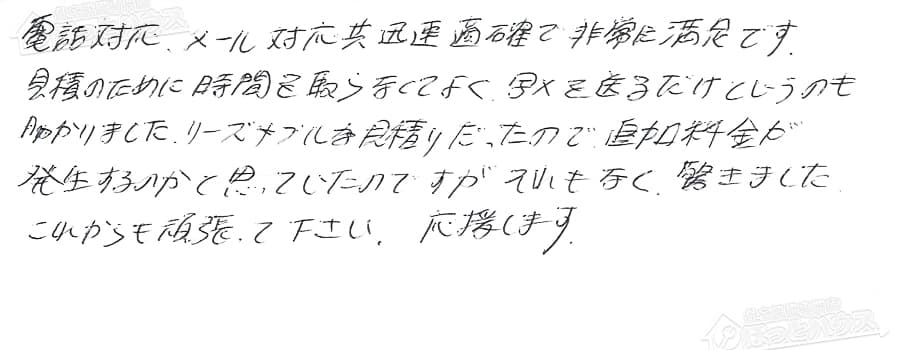 電話対応、メール対応共迅速適確で非常に満足です.
見積のために時間を取らなくてよく、写メを送るだけというのも
助かりました.リーズナブルな見積りだったので追加料金が
発生するのかと思っていたのですがそれもなく、驚きました
これからも頑張って下さい. 応援します.
ほっとハウス